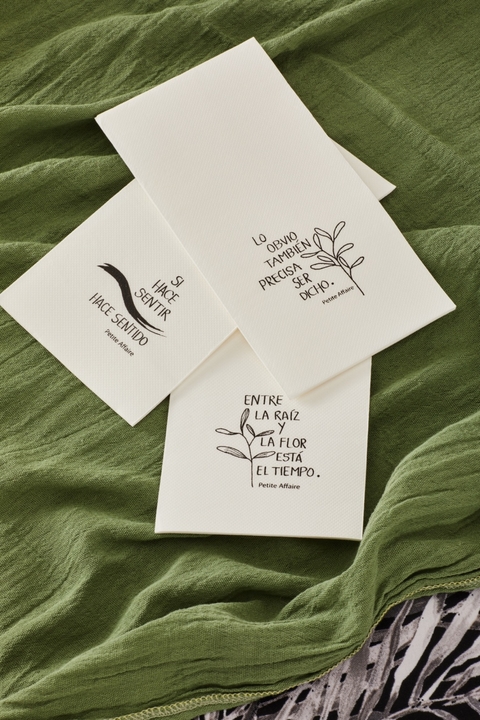 LO
OBVIO
TAMBIÉN
PRECISA
SER
DICHO.
Petite Affaire
SI
HACE
SENTIR
HACE SENTIDO
Petite Affaire
ENTRE
LA RAÍZ
Y
LA FLOR
ESTÁ
EL TIEMPO.
Petite Affaire